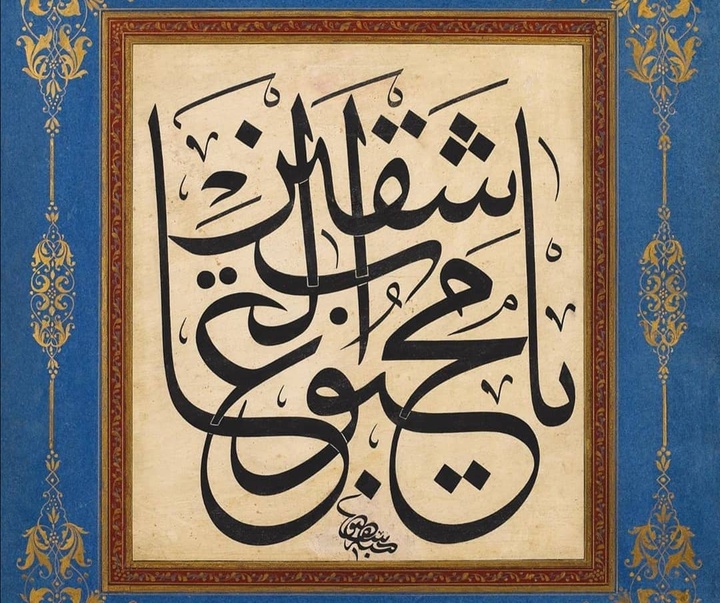 يا محبوب العاشقين